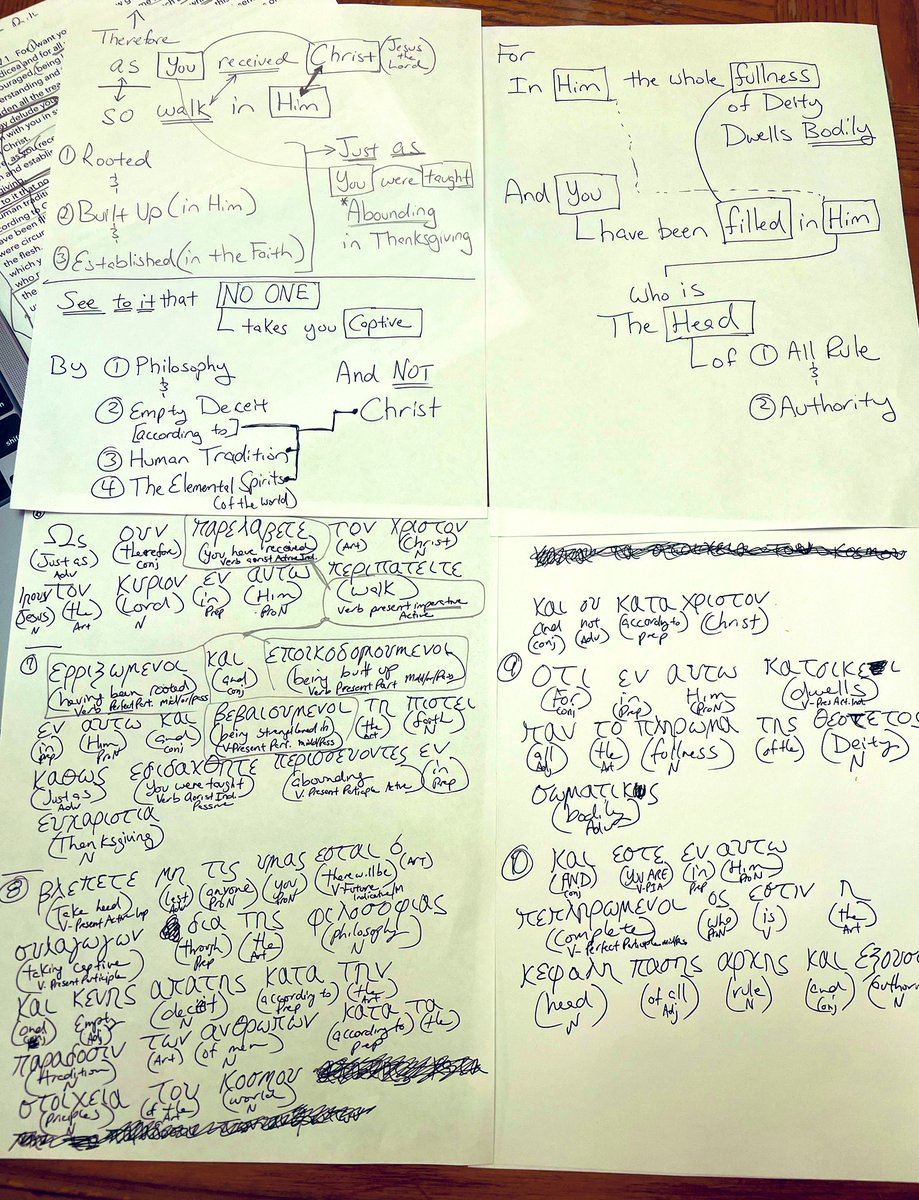 Therefore
as You received Christ (Jesus the Lord)
so walk in Him
① Rooted
&
② Built Up (in Him)
&
③ Established (in the Faith)
Just as
You were taught
*Abounding
in Thanksgiving
See to it that NO ONE
takes you Captive
By ① Philosophy
&
② Empty Deceit
[according to]
③ Human Tradition
④ The Elemental Spirits
(of the World)
And NOT
Christ
For
In Him the whole fullness
of Deity
Dwells Bodily
And You
have been filled in Him
who is
The Head
of ① All Rule
&
② Authority
Ως ουν παρελαβετε τον χριστον
(Just as) (therefore) (you have received) (Art) (Christ)
Adv conj Verb aorist Active Ind. N
Ιησουν τον κυριον εν αυτω περιπατειτε
(Jesus) (the) (Lord) (in) (Him) (walk)
N Art N Prep ProN Verb present imperative
Active
⑦ ερριζωμενοι και εποικοδομουμενοι
(having been rooted) (and) (being built up)
Verb Perfect Part. mid/or/pass conj Verb Present Part. mid/or/Pass
εν αυτω και βεβαιουμενοι τη πιστει
(in) (Him) (and) (being strengthened in) (the) (faith)
prep ProN conj V-Present Part. midd/Pass Art N
καθως εδιδαχθητε περισσευοντες εν
(Just as) (You were taught) (abounding) (in)
Adv Verb aorist Ind. Passive V. Present Participle Active Prep
ευχαριστια
(Thanksgiving)
N
⑧ βλεπετε μη τις υμας εσται ὁ
(Take heed) (lest) (anyone) (you) (there will be) (Art)
V-Present Active-Imp Adv ProN ProN V-Future Indicative/M
συλαγωγων δια της φιλοσοφιας
(taking captive) (through) (the) (philosophy)
V. Present Participle Prep Art N
και κενης απατης κατα την
(and) Empty (deceit) (according to) (the)
conj (Adj) N Prep Art
παραδοσιν των ανθρωπων κατα τα
(tradition) (Art) (of men) (according to) (the)
N N prep
στοιχεια του κοσμου
(principles) (of the) (world)
N Art N
και ου κατα χριστον
and not (according to) (Christ)
(conj) (Adv) prep
⑨ οτι εν αυτω κατοικει
(For) in Him (dwells)
conj (prep) (ProN) V-Pres Act. Ind
παν το πληρωμα της θεοτετος
(all) (the) (fullness) (of the) (Deity)
Adj Art N N
σωματικος
(bodily)
Adv
⑩ και εστε εν αυτω
(AND) (You ARE) (in) (Him)
Conj V-PIA Prep ProN
πεπληρωμενοι ος εστιν η
(complete) (who) (is) (the)
V-Perfect Participle mid/pas ProN V Art
κεφαλη πασης αρχης και
(head) (of all) (rule) (and)
N Adj N Conj N